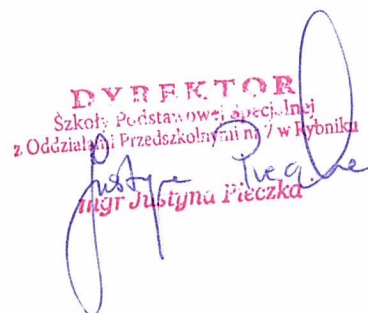 DYREKTOR
Szkoły Podstawowej Specjalnej
z Oddziałami Przedszkolnymi nr 7 w Rybniku
mgr Justyna Pieczka
Justyna Pieczka